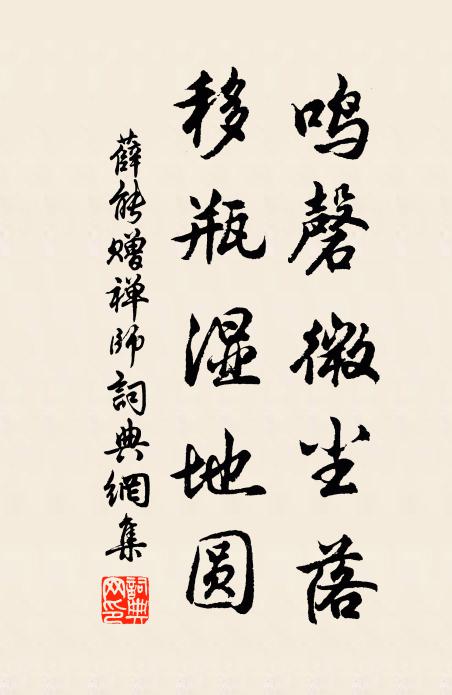 鸣磬微尘落
移瓶湿地圆
薛能赠禅师詞典網集
詞典网印